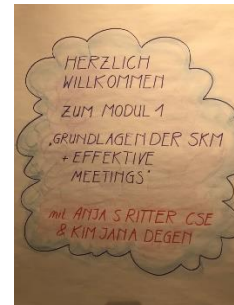 HERZLICH
WILLKOMMEN
ZUM MODUL 1
„GRUNDLAGEN DER SKM
+ EFFEKTIVE
MEETINGS"
mit ANJA S RITTER CSE
& KIM JANA DEGEN